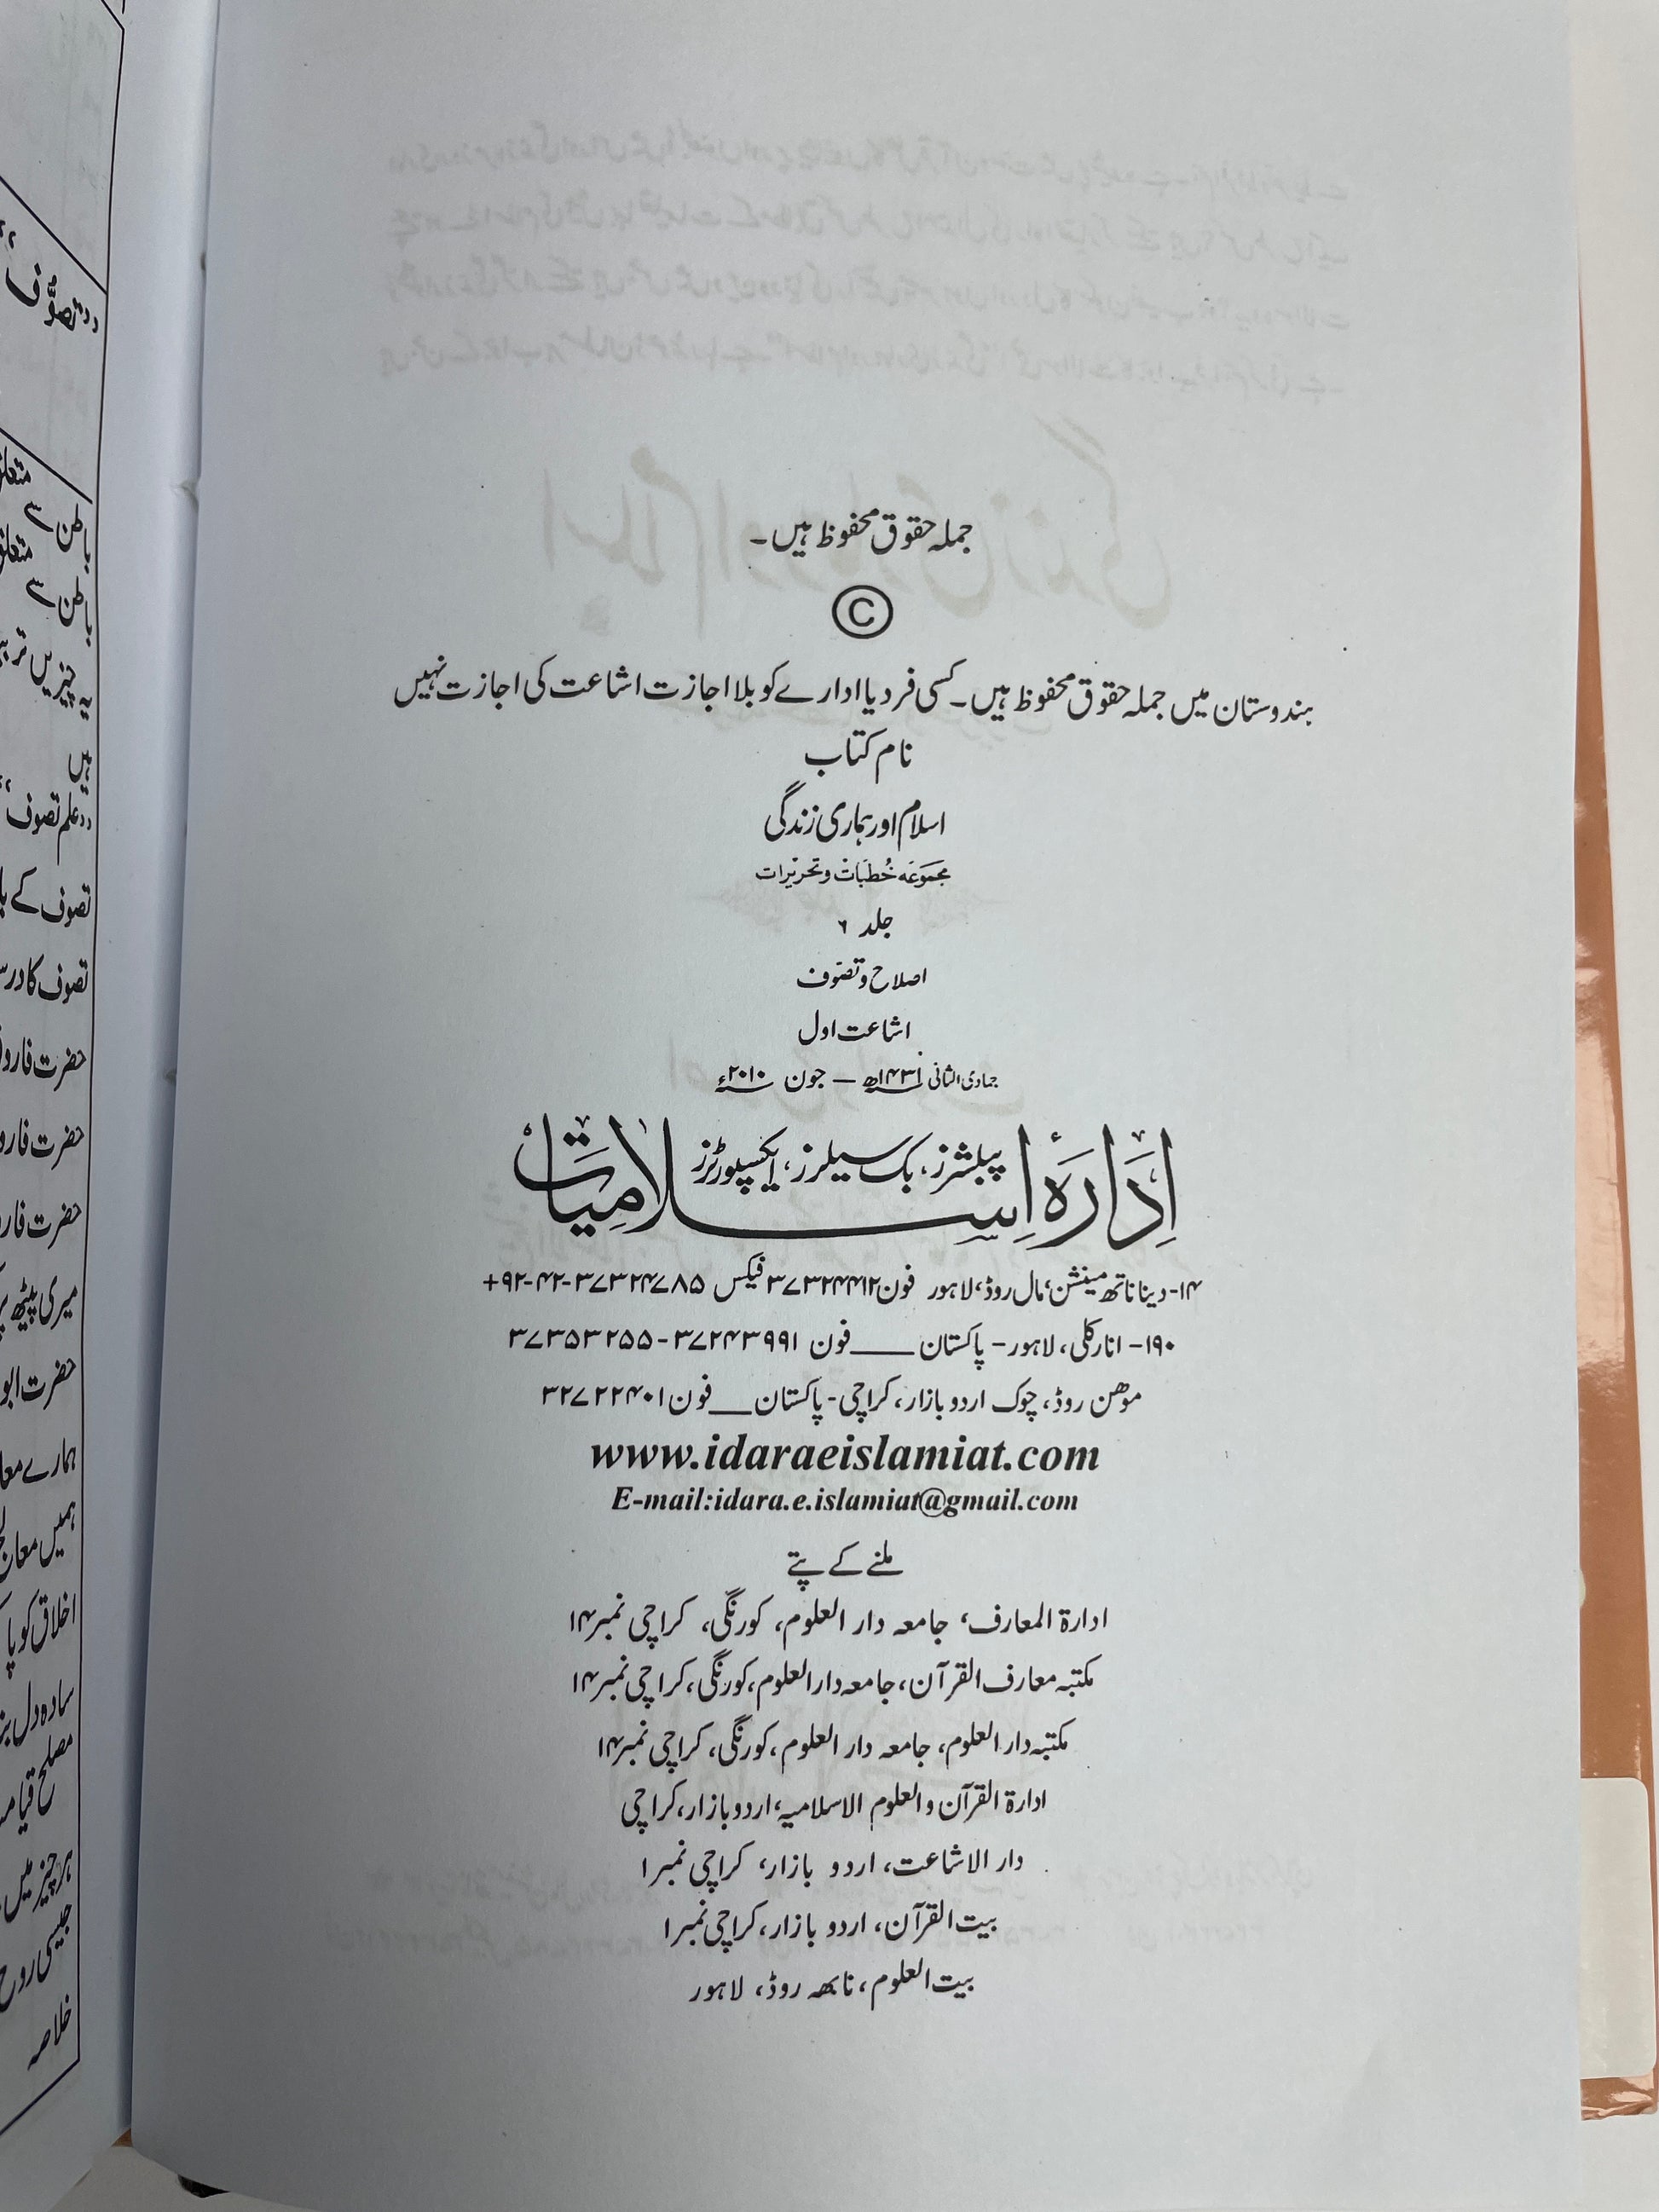 جملہ حقوق محفوظ ہیں۔
©
ہندوستان میں جملہ حقوق محفوظ ہیں۔ کسی فرد یا ادارے کو بلا اجازت اشاعت کی اجازت نہیں
نام کتاب
اسلام اور ہماری زندگی
مجموعہ خُطبات و تحریرات
جلد ۶
اصلاح و تصوّف
اشاعت اول
جمادی الثانی ۱۴۳۱ھ — جون ۲۰۱۰ء
اِدَارَہ اِسلامیات
پبلشرز، بک سیلرز، ایکسپورٹرز
۱۴- دینا ناتھ مینشن، مال روڈ، لاہور فون ۳۷۳۲۴۴۱۲ فیکس ۳۷۳۲۴۷۸۵-۴۲-۹۲+
۱۹۰- انارکلی، لاہور- پاکستان ـــــ فون ۳۷۲۴۳۹۹۱-۳۷۳۵۳۲۵۵
موھن روڈ، چوک اردو بازار، کراچی- پاکستان ـــــ فون ۳۲۷۲۲۴۰۱
www.idaraeislamiat.com
E-mail:idara.e.islamiat@gmail.com
ملنے کے پتے
ادارۃ المعارف، جامعہ دار العلوم، کورنگی، کراچی نمبر ۱۴
مکتبہ معارف القرآن، جامعہ دار العلوم، کورنگی، کراچی نمبر ۱۴
مکتبہ دار العلوم، جامعہ دار العلوم، کورنگی، کراچی نمبر ۱۴
ادارۃ القرآن والعلوم الاسلامیہ، اردو بازار، کراچی
دار الاشاعت، اردو بازار، کراچی نمبر ۱
بیت القرآن، اردو بازار، کراچی نمبر ۱
بیت العلوم، نابھہ روڈ، لاہور
"تصوُّف"
باطن سے
باطن سے
یہ چیزیں
ہیں
"علم تصوف"
تصوف کے
تصوف کا
حضرت
حضرت
حضرت
میری پیٹھ
حضرت
ہمارے
ہمیں
اخلاق کو
سادہ دل
مصلح
ہر چیز میں
جیسی روح
خلاصہ